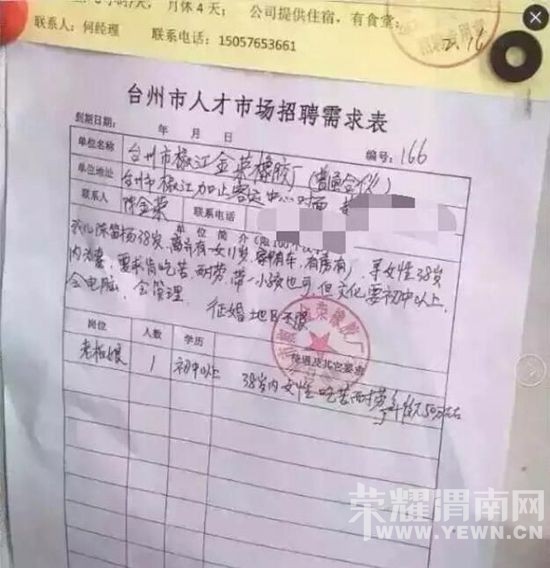 月休4天； 公司提供住宿，有食堂；
联系人：何经理 联系电话：15057653661
2.16
台州市人才市场招聘需求表
到期日期： 年 月 日 编号：166
单位名称 台州市椒江金荣橡胶厂（普通合伙）
单位地址 台州市椒江加止客运中心对面
联系人 陈金荣 联系电话
单位简介
38岁，离异有一女11岁，有车，有房，寻女性38岁
内为妻，要求肯吃苦耐劳，带一小孩也可，但文化要初中以上，
会电脑，会管理。 征婚地区不限
荣橡胶厂
岗位 人数 学历 待遇及其它要求
老板娘 1 初中以上 38岁内女性吃苦耐劳年薪50万左右
荣耀渭南网
WWW.YEWN.CN